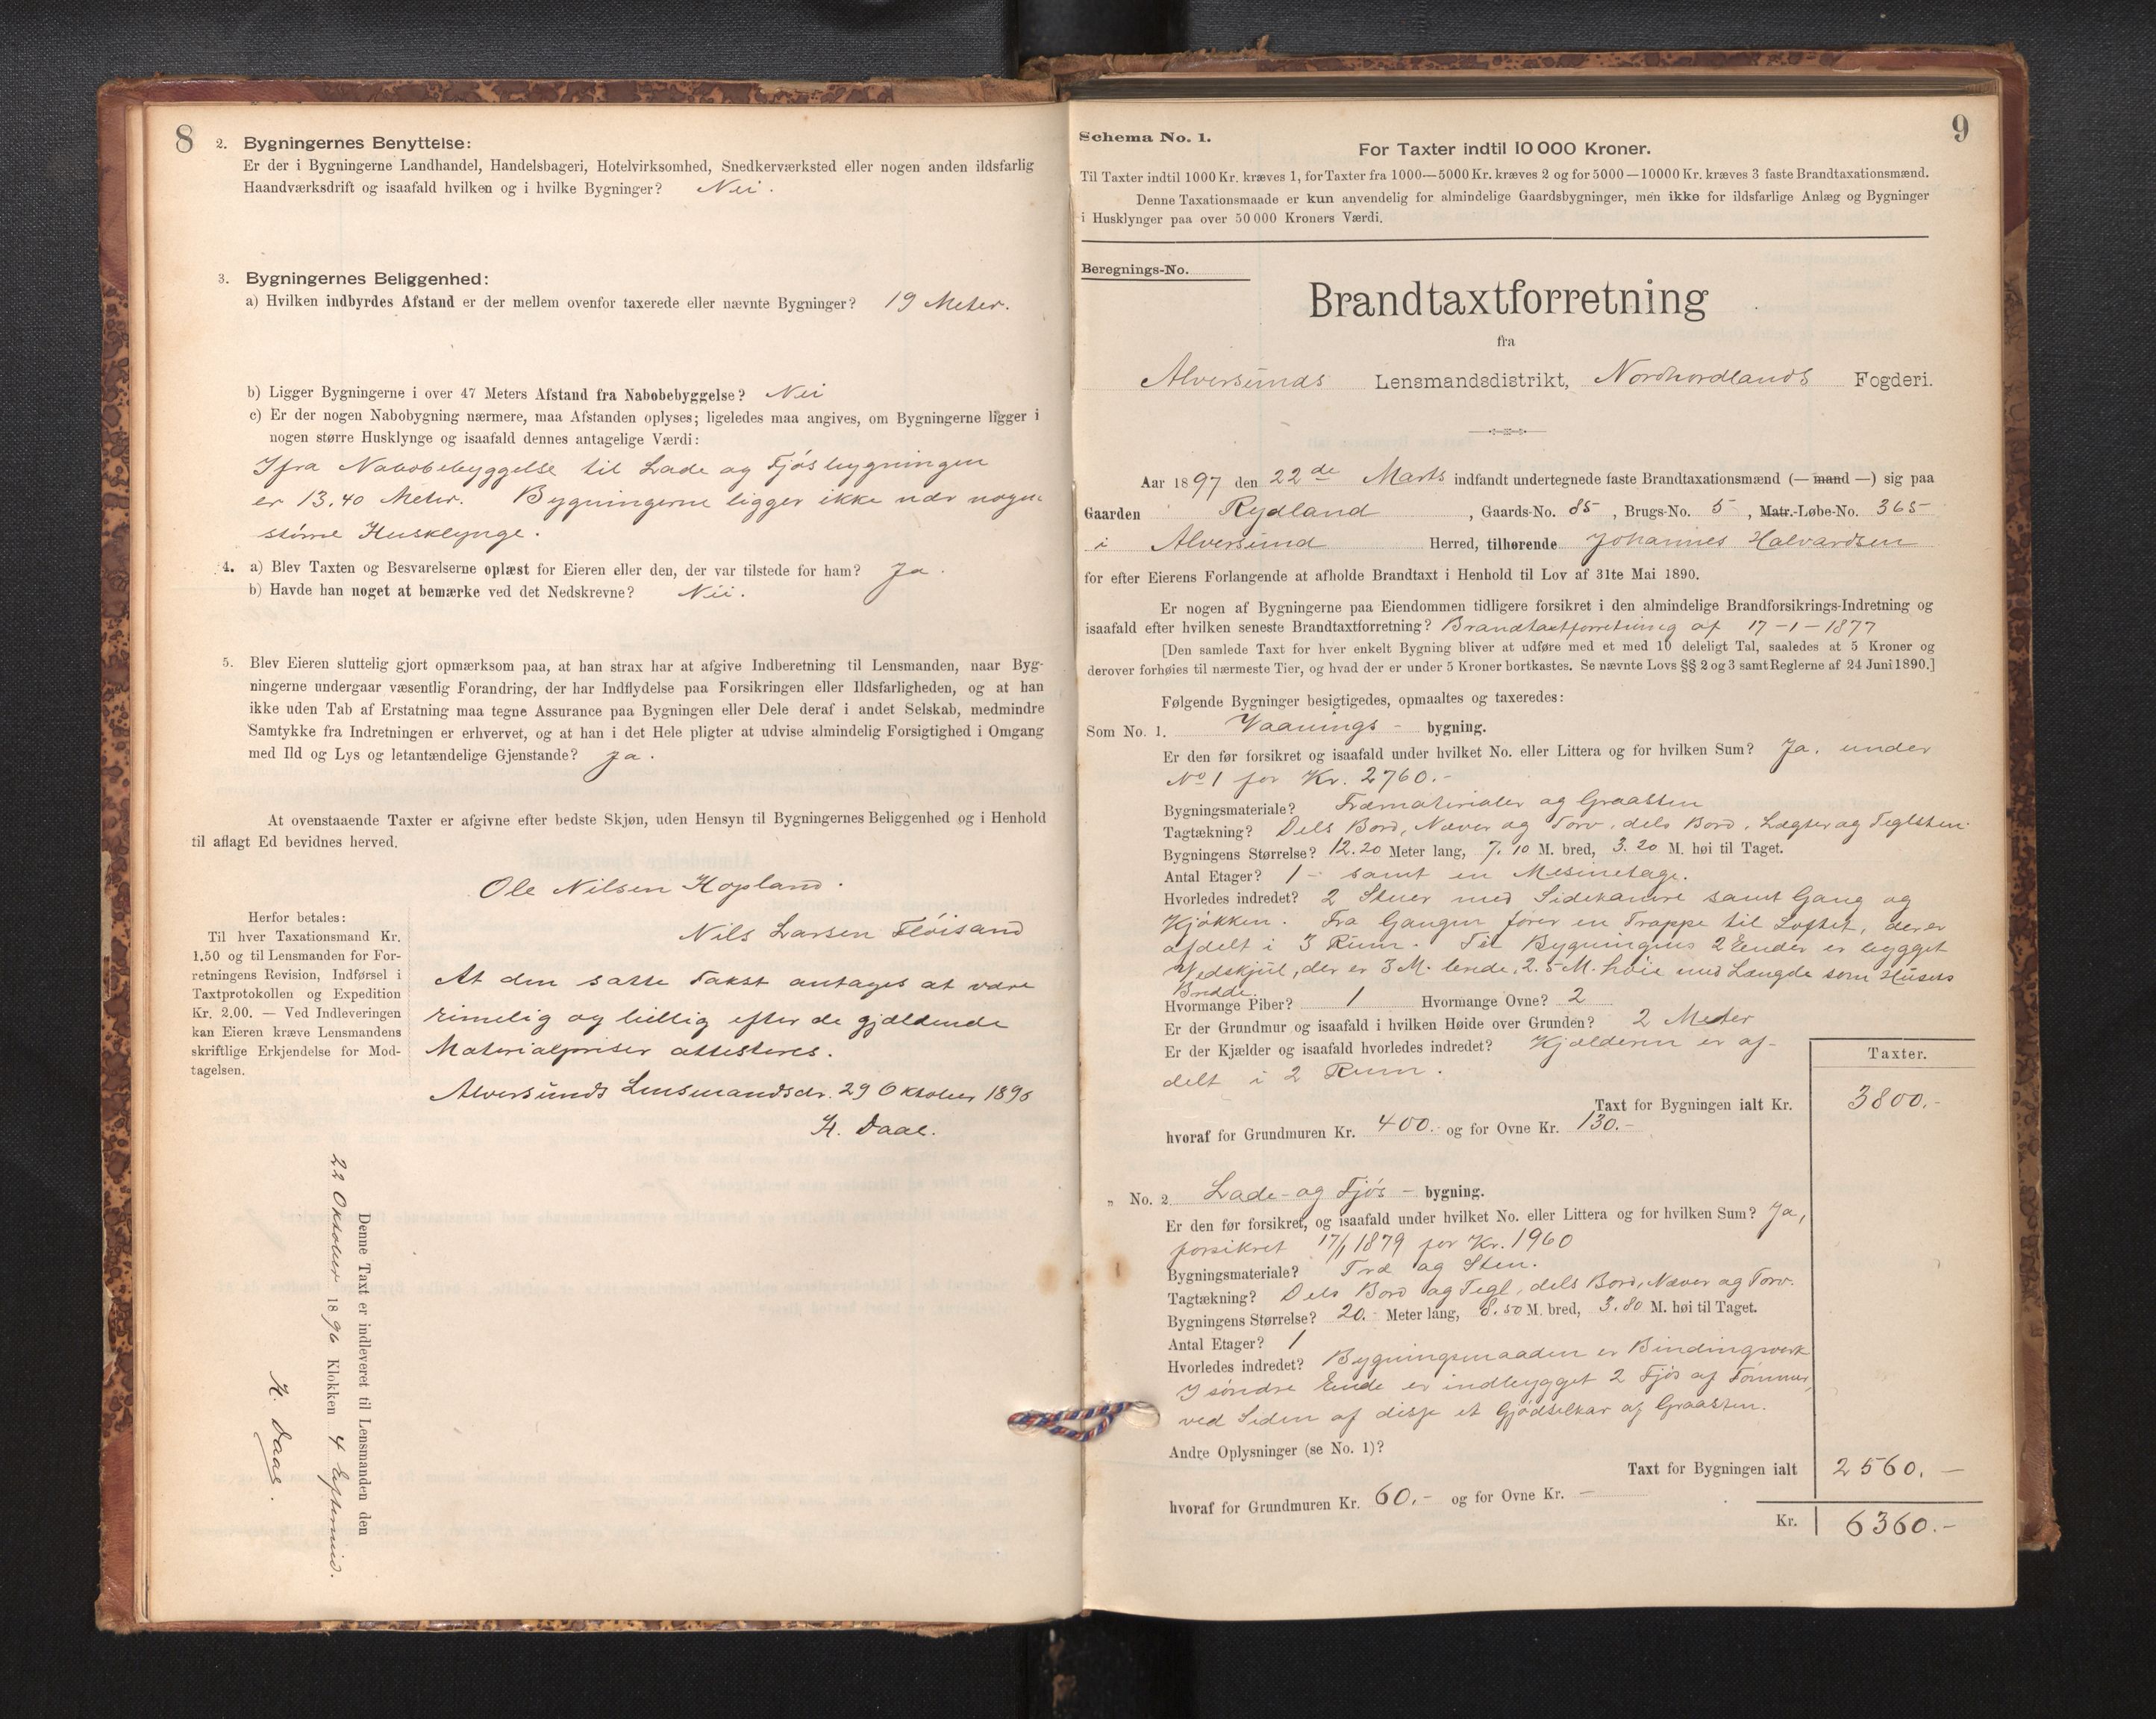 8
2. Bygningernes Benyttelse:
Er der i Bygningerne Landhandel, Handelsbageri, Hotelvirksomhed, Snedkerværksted eller nogen anden ildsfarlig
Haandværksdrift og isaafald hvilken og i hvilke Bygninger? Nei.
3. Bygningernes Beliggenhed:
a) Hvilken indbyrdes Afstand er der mellem ovenfor taxerede eller nævnte Bygninger? 19 Meter.
b) Ligger Bygningerne i over 47 Meters Afstand fra Nabobebyggelse? Nei
c) Er der nogen Nabobygning nærmere, maa Afstanden oplyses; ligeledes maa angives, om Bygningerne ligger i
nogen større Husklynge og isaafald dennes antagelige Værdi:
Ifra Nabobebyggelse til Lade og Fjøsbygningen
er 13.40 Meter. Bygningerne ligger ikke nær nogen
større Husklynge.
4. a) Blev Taxten og Besvarelserne oplæst for Eieren eller den, der var tilstede for ham? Ja.
b) Havde han noget at bemærke ved det Nedskrevne? Nei.
5. Blev Eieren sluttelig gjort opmærksom paa, at han strax har at afgive Indberetning til Lensmanden, naar Byg-
ningerne undergaar væsentlig Forandring, der har Indflydelse paa Forsikringen eller Ildsfarligheden, og at han
ikke uden Tab af Erstatning maa tegne Assurance paa Bygningen eller Dele deraf i andet Selskab, medmindre
Samtykke fra Indretningen er erhvervet, og at han i det Hele pligter at udvise almindelig Forsigtighed i Omgang
med Ild og Lys og letantændelige Gjenstande? Ja.
At ovenstaaende Taxter er afgivne efter bedste Skjøn, uden Hensyn til Bygningernes Beliggenhed og i Henhold
til aflagt Ed bevidnes herved.
Ole Nilsen Hopland.
Nils Larsen Fløisand
Herfor betales:
Til hver Taxationsmand Kr.
1.50 og til Lensmanden for For-
retningens Revision, Indførsel i
Taxtprotokollen og Expedition
Kr. 2.00. — Ved Indleveringen
kan Eieren kræve Lensmandens
skriftlige Erkjendelse for Mod-
tagelsen.
At den satte Takst antages at være
rimelig og billig efter de gjældende
Materialpriser attesteres.
Alversunds Lensmandsdr. 29 Oktober 1896
H. Daae.
Denne Taxt er indleveret til Lensmanden den
22 Oktober 1896 Klokken 4 Eftermid.
H. Daae.
9
Schema No. 1.
For Taxter indtil 10 000 Kroner.
Til Taxter indtil 1000 Kr. kræves 1, for Taxter fra 1000—5000 Kr. kræves 2 og for 5000—10000 Kr. kræves 3 faste Brandtaxationsmænd.
Denne Taxationsmaade er kun anvendelig for almindelige Gaardsbygninger, men ikke for ildsfarlige Anlæg og Bygninger
i Husklynger paa over 50 000 Kroners Værdi.
Beregnings-No.
Brandtaxtforretning
fra
Alversunds Lensmandsdistrikt, Nordhordlands Fogderi.
Aar 1897 den 22de Marts indfandt undertegnede faste Brandtaxationsmænd (— mand —) sig paa
Gaarden Rydland, Gaards-No. 85, Brugs-No. 5, Matr.-Løbe-No. 365
i Alversund Herred, tilhørende Johannes Halvardsen
for efter Eierens Forlangende at afholde Brandtaxt i Henhold til Lov af 31te Mai 1890.
Er nogen af Bygningerne paa Eiendommen tidligere forsikret i den almindelige Brandforsikrings-Indretning og
isaafald efter hvilken seneste Brandtaxtforretning? Brandtaxtforretning af 17-1-1877
[Den samlede Taxt for hver enkelt Bygning bliver at udføre med et med 10 deleligt Tal, saaledes at 5 Kroner og
derover forhøies til nærmeste Tier, og hvad der er under 5 Kroner bortkastes. Se nævnte Lovs §§ 2 og 3 samt Reglerne af 24 Juni 1890.]
Følgende Bygninger besigtigedes, opmaaltes og taxeredes:
Som No. 1. Vaanings- bygning.
Er den før forsikret og isaafald under hvilket No. eller Littera og for hvilken Sum? Ja, under
No 1 for Kr. 2760.-
Bygningsmateriale? Træmaterialer og Graasten
Tagtækning? Dels Bord, Næver og Torv, dels Bord, Lægter og Teglsten.
Bygningens Størrelse? 12.20 Meter lang, 7.10 M. bred, 3.20 M. høi til Taget.
Antal Etager? 1 - samt en Mesinetage.
Hvorledes indredet? 2 Stuer med Sidekamre samt Gang og
Kjøkken. Fra Gangen fører en Trappe til Loftet, der er
afdelt i 3 Rum. Til Bygningens 2 Ender er bygget
Vedskjul, der er 3 M. brede, 2.5 M. høie med Længde som Husets
Bredde.
Hvormange Piber? 1 Hvormange Ovne? 2
Er der Grundmur og isaafald i hvilken Høide over Grunden? 2 Meter
Er der Kjælder og isaafald hvorledes indredet? Kjælderen er af-
delt i 2 Rum.
Taxter.
Taxt for Bygningen ialt Kr. 3800.-
hvoraf for Grundmuren Kr. 400.- og for Ovne Kr. 130.-
„ No. 2. Lade- og Fjøs- bygning.
Er den før forsikret, og isaafald under hvilket No. eller Littera og for hvilken Sum? Ja,
forsikret 17/1 1879 for Kr. 1960
Bygningsmateriale? Træ og Sten.
Tagtækning? Dels Bord og Tegl, dels Bord, Næver og Torv.
Bygningens Størrelse? 20.- Meter lang, 8.50 M. bred, 3.80 M. høi til Taget.
Antal Etager? 1
Hvorledes indredet? Bygningsmaaden er Bindingsverk
I søndre Ende er indbygget 2 Fjøs af Tømmer,
ved Siden af disse et Gjødselkar af Graasten.
Andre Oplysninger (se No. 1)?
Taxt for Bygningen ialt 2560.-
hvoraf for Grundmuren Kr. 60.- og for Ovne Kr. -
Kr. 6360.-